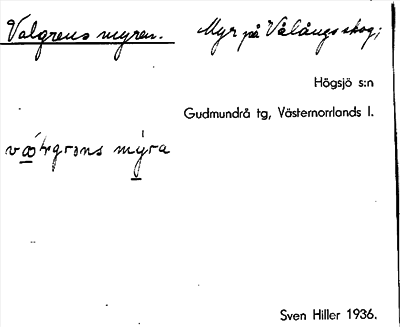 Valgrens myren. Myr på Vålångs skog;
Högsjö s:n
Gudmundrå tg, Västernorrlands l.
mýra
Sven Hiller 1936.